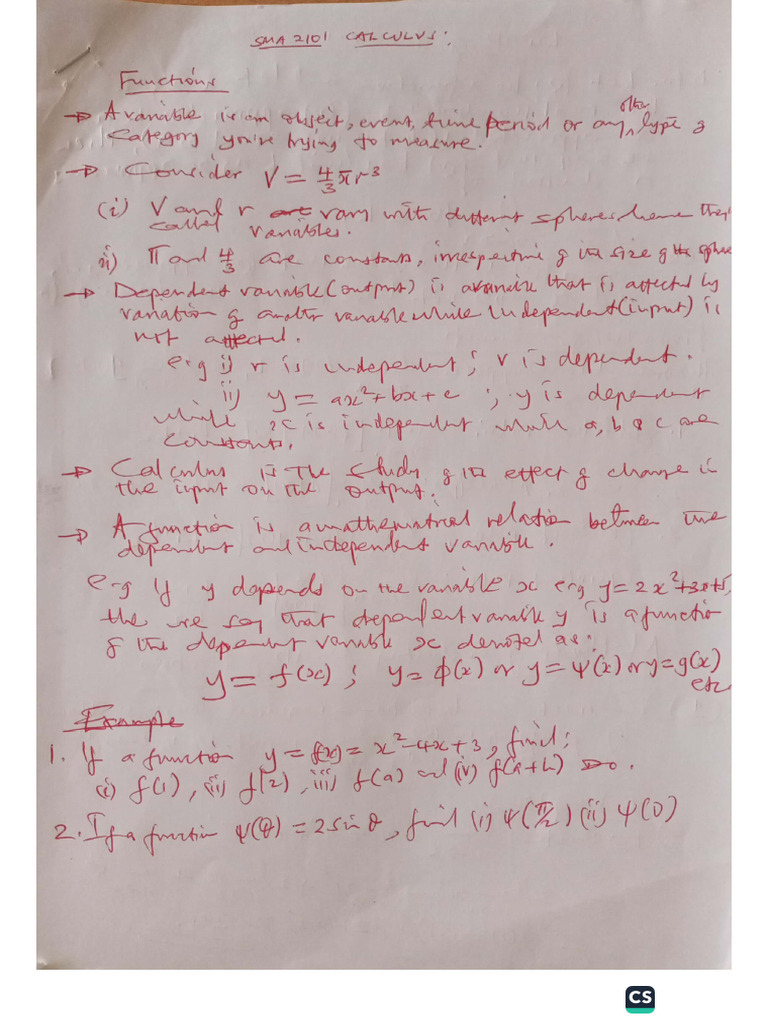 SMA 2101 CALCULUS:
Functions
→ A variable is an object, event, time period or any other type of
category you're trying to measure.
→ Consider V = 4/3 πr³
(i) V and r are vary with different spheres hence they
called variables.
ii) π and 4/3 are constants, irrespective of the size of the sphere
→ Dependent variable (output) is a variable that is affected by
variation of another variable while Independent (input) is
not affected.
e.g i) r is independent; v is dependent.
ii) y = ax² + bx + c ; y is dependent
while x is independent while a, b & c are
constants.
→ Calculus is the study of the effect of change in
the input on the output.
→ A function is a mathematical relation between the
dependent and independent variable.
e-g If y depends on the variable x e.g y = 2x²+3x+5,
the we say that dependent variable y is a function
of the dependent variable x denoted as:
y = f(x) ; y = ϕ(x) or y = Ψ(x) or y = g(x)
etc
Example
1. If a function y = f(x) = x² - 4x + 3, find;
(i) f(1), (ii) f(2), iii) f(a) and (iv) f(a+h)
2. If a function Ψ(θ) = 2 sin θ, find (i) Ψ(π/2) (ii) Ψ(0)
CS